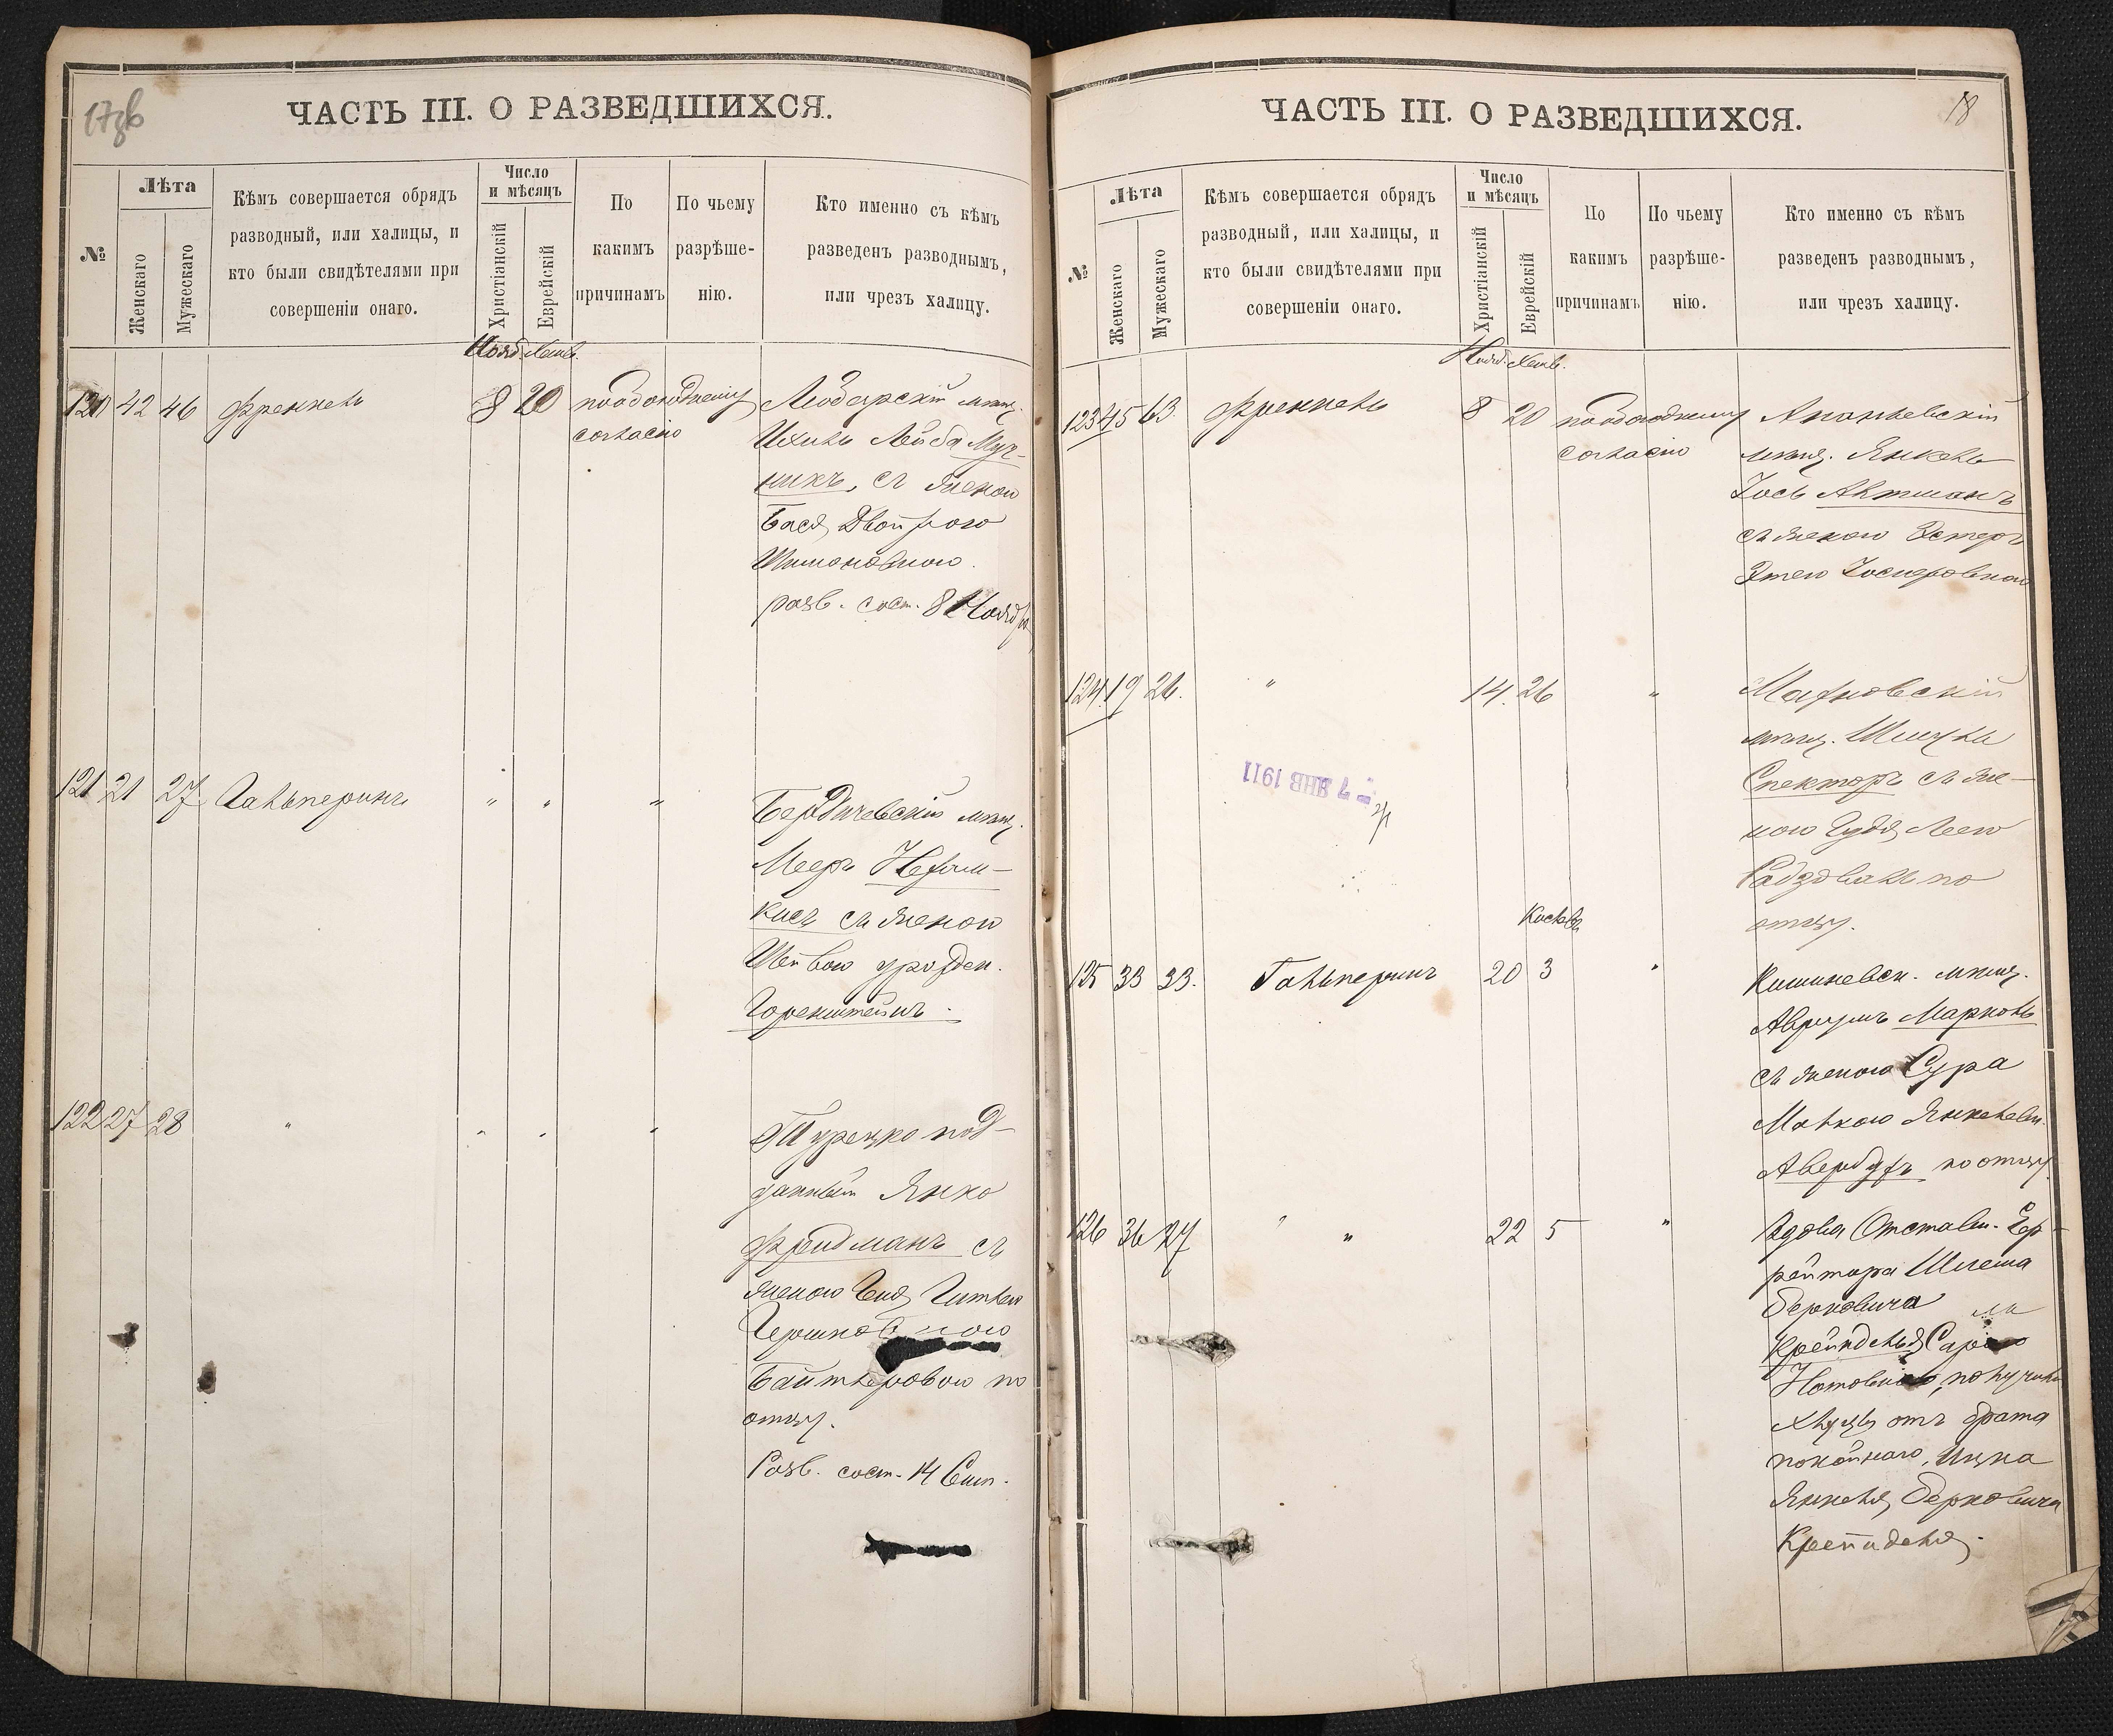 17об
ЧАСТЬ III. О РАЗВЕДШИХСЯ.
№
Лѣта
Женскаго
Мужескаго
Кѣмъ совершается обрядъ
разводный, или халицы, и
кто были свидѣтелями при
совершеніи онаго.
Число
и мѣсяцъ
Христіанскій
Еврейскій
По
какимъ
причинамъ
По чьему
разрѣше-
нію.
Кто именно съ кѣмъ
разведенъ разводнымъ,
или чрезъ халицу.
Нояб. Хешв.
120 42 46 Френкель 8 20 по обоюдному
согласію
мѣщ.
Ихиль Лейба Муч-
никъ, съ женою
Бася Двойрою
Шимоновною.
разв. сост. 8 Ноября
121 21 27 Гальперинъ " " "
Бердичевскій мѣщ.
Мееръ
съ женою
Шейвою урожден.
Горенштейнъ.
122 27 28 " " " "
Турецко под-
данный Янко
Фридманъ съ
женою Гитлею
Гершковною
по
отцу.
Разв. сост. 14 Сент.
18
ЧАСТЬ III. О РАЗВЕДШИХСЯ.
№
Лѣта
Женскаго
Мужескаго
Кѣмъ совершается обрядъ
разводный, или халицы, и
кто были свидѣтелями при
совершеніи онаго.
Число
и мѣсяцъ
Христіанскій
Еврейскій
По
какимъ
причинамъ
По чьему
разрѣше-
нію.
Кто именно съ кѣмъ
разведенъ разводнымъ,
или чрезъ халицу.
Нояб. Хешв.
123 45 63 Френкель 8 20 по обоюдному
согласію
Ананьевскій
мѣщ. Янкель
Іось Актманъ
съ женою Эстеръ
Этею Іосиповною
124. 19 26. " 14. 26 "
мѣщ. Шмуль
Спекторъ съ же-
ною Гудя Леею
по
отцу.
- 7 ЯНВ 1911
Кислевъ
125 33 33. Гальперинъ 20 3 "
Кишиневск. мѣщ.
Аврумъ Марколь
съ женою Сура
Малкою Янкелевн.
Авербухъ по отцу.
126 36 27 " " 22 5 "
Вдова Отставн. Еф-
рейтора Шлема
Берковича
Крейндель Сарою
Нотовною, получила
хлуцъ отъ брата
покойнаго, Ицка
Янкеля Берковича